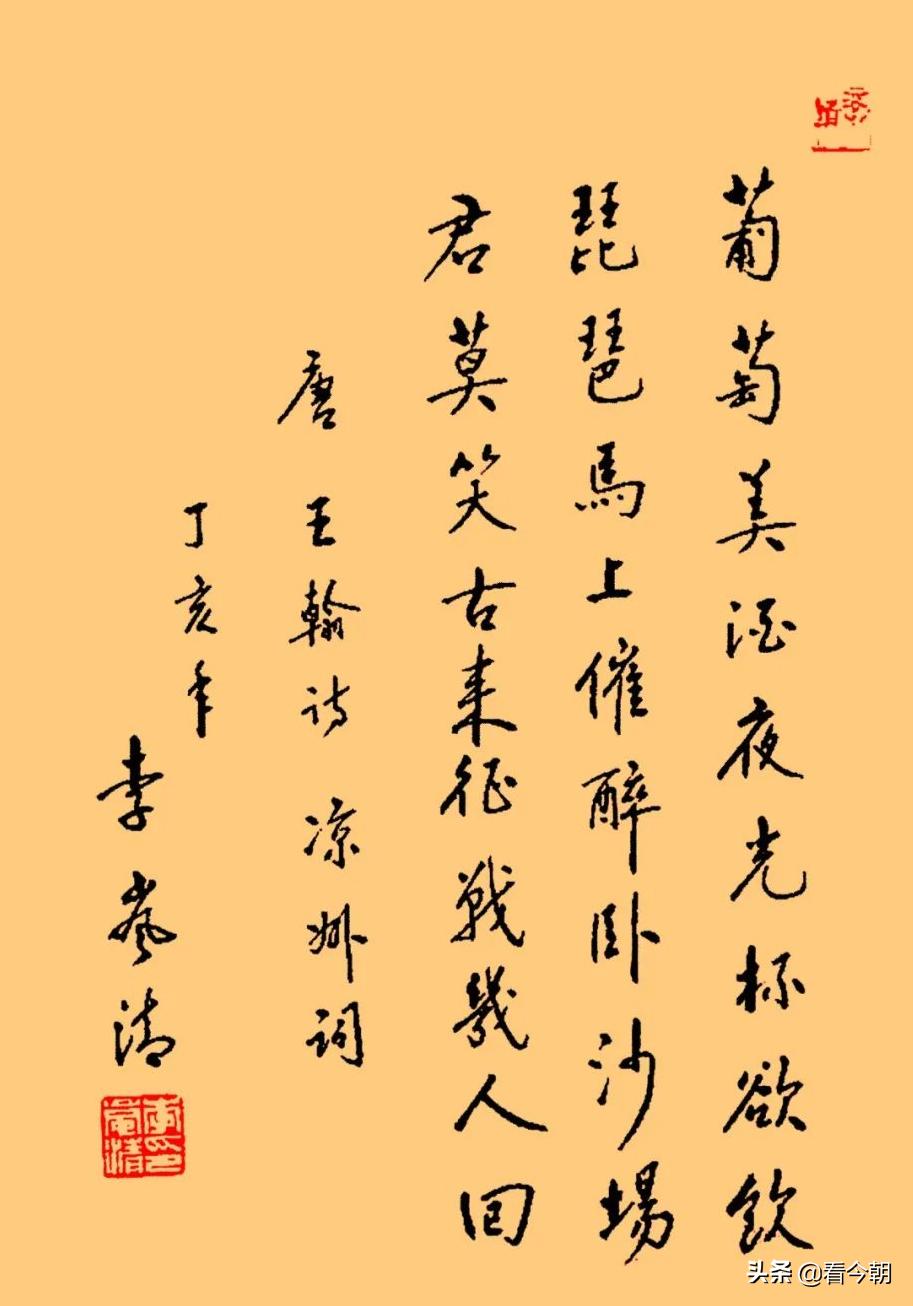 葡萄美酒夜光杯欲飲
琵琶馬上催醉卧沙場
君莫笑古来征戰幾人回
唐王翰詩凉州詞
丁亥年
李嵐清
頭条 @看今朝